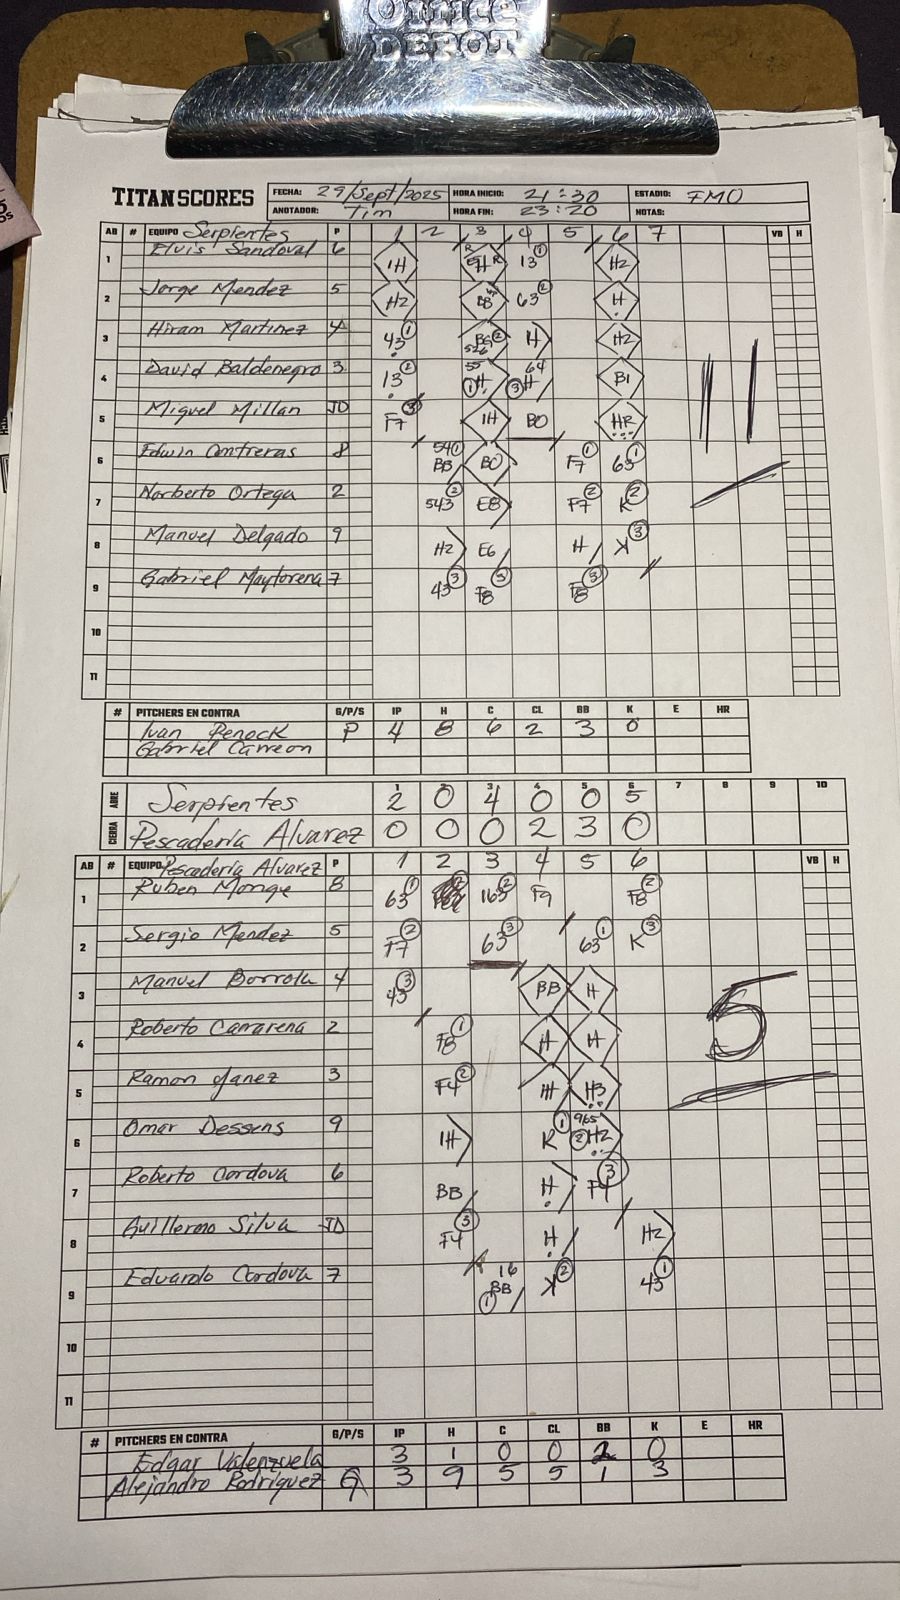 Office
DEPOT
TITANSCORES
FECHA: 29/Sept/2025 HORA INICIO: 21:30 ESTADIO: FMO
ANOTADOR: Tim HORA FIN: 23:20 NOTAS:
AB # EQUIPO Serpientes P 1 2 3 4 5 6 7 VB H
1 Elvis Sandoval 6 1H 13 1 H2
2 Jorge Mendez 5 H2 BB 63 2 H
3 Hiram Martinez 4 43 1 2 H H2
4 David Baldenegro 3 13 2 1 H 64 3 H B1
5 Miguel Millan JD F7 3 1H BO HR
11
6 Edwin Contreras 8 54 1 BB BO F7 1 63 1
7 Norberto Ortega 2 543 2 E8 F7 2 K 2
8 Manuel Delgado 9 H2 E6 H K 3
9 Gabriel Maytorena 7 43 3 F8 3 F8 3
10
11
# PITCHERS EN CONTRA G/P/S IP H C CL BB K E HR
Ivan Penock P 4 8 6 2 3 0
Gabriel Carreon
ABRE Serpientes 1 2 3 4 5 6 7 8 9 10
2 0 4 0 0 5
CIERRA Pescadería Alvarez 0 0 0 2 3 0
AB # EQUIPO Pescadería Alvarez P 1 2 3 4 5 6 VB H
1 Ruben Monge 8 63 1 163 2 F9 F8 2
2 Sergio Mendez 5 F7 2 63 3 63 1 K 3
3 Manuel Borrola 4 43 3 BB H
5
4 Roberto Camarena 2 F8 1 H H
5 Ramon Yanez 3 F4 2 H H3
6 Omar Dessens 9 1H K 1 965 2 H2
7 Roberto Cordova 6 BB H 3
8 Guillermo Silva JD F4 3 H H2
9 Eduardo Cordova 7 16 BB 1 K 2 43 1
10
11
# PITCHERS EN CONTRA G/P/S IP H C CL BB K E HR
Edgar Valenzuela 3 1 0 0 2 0
Alejandro Rodriguez G 3 9 5 5 1 3